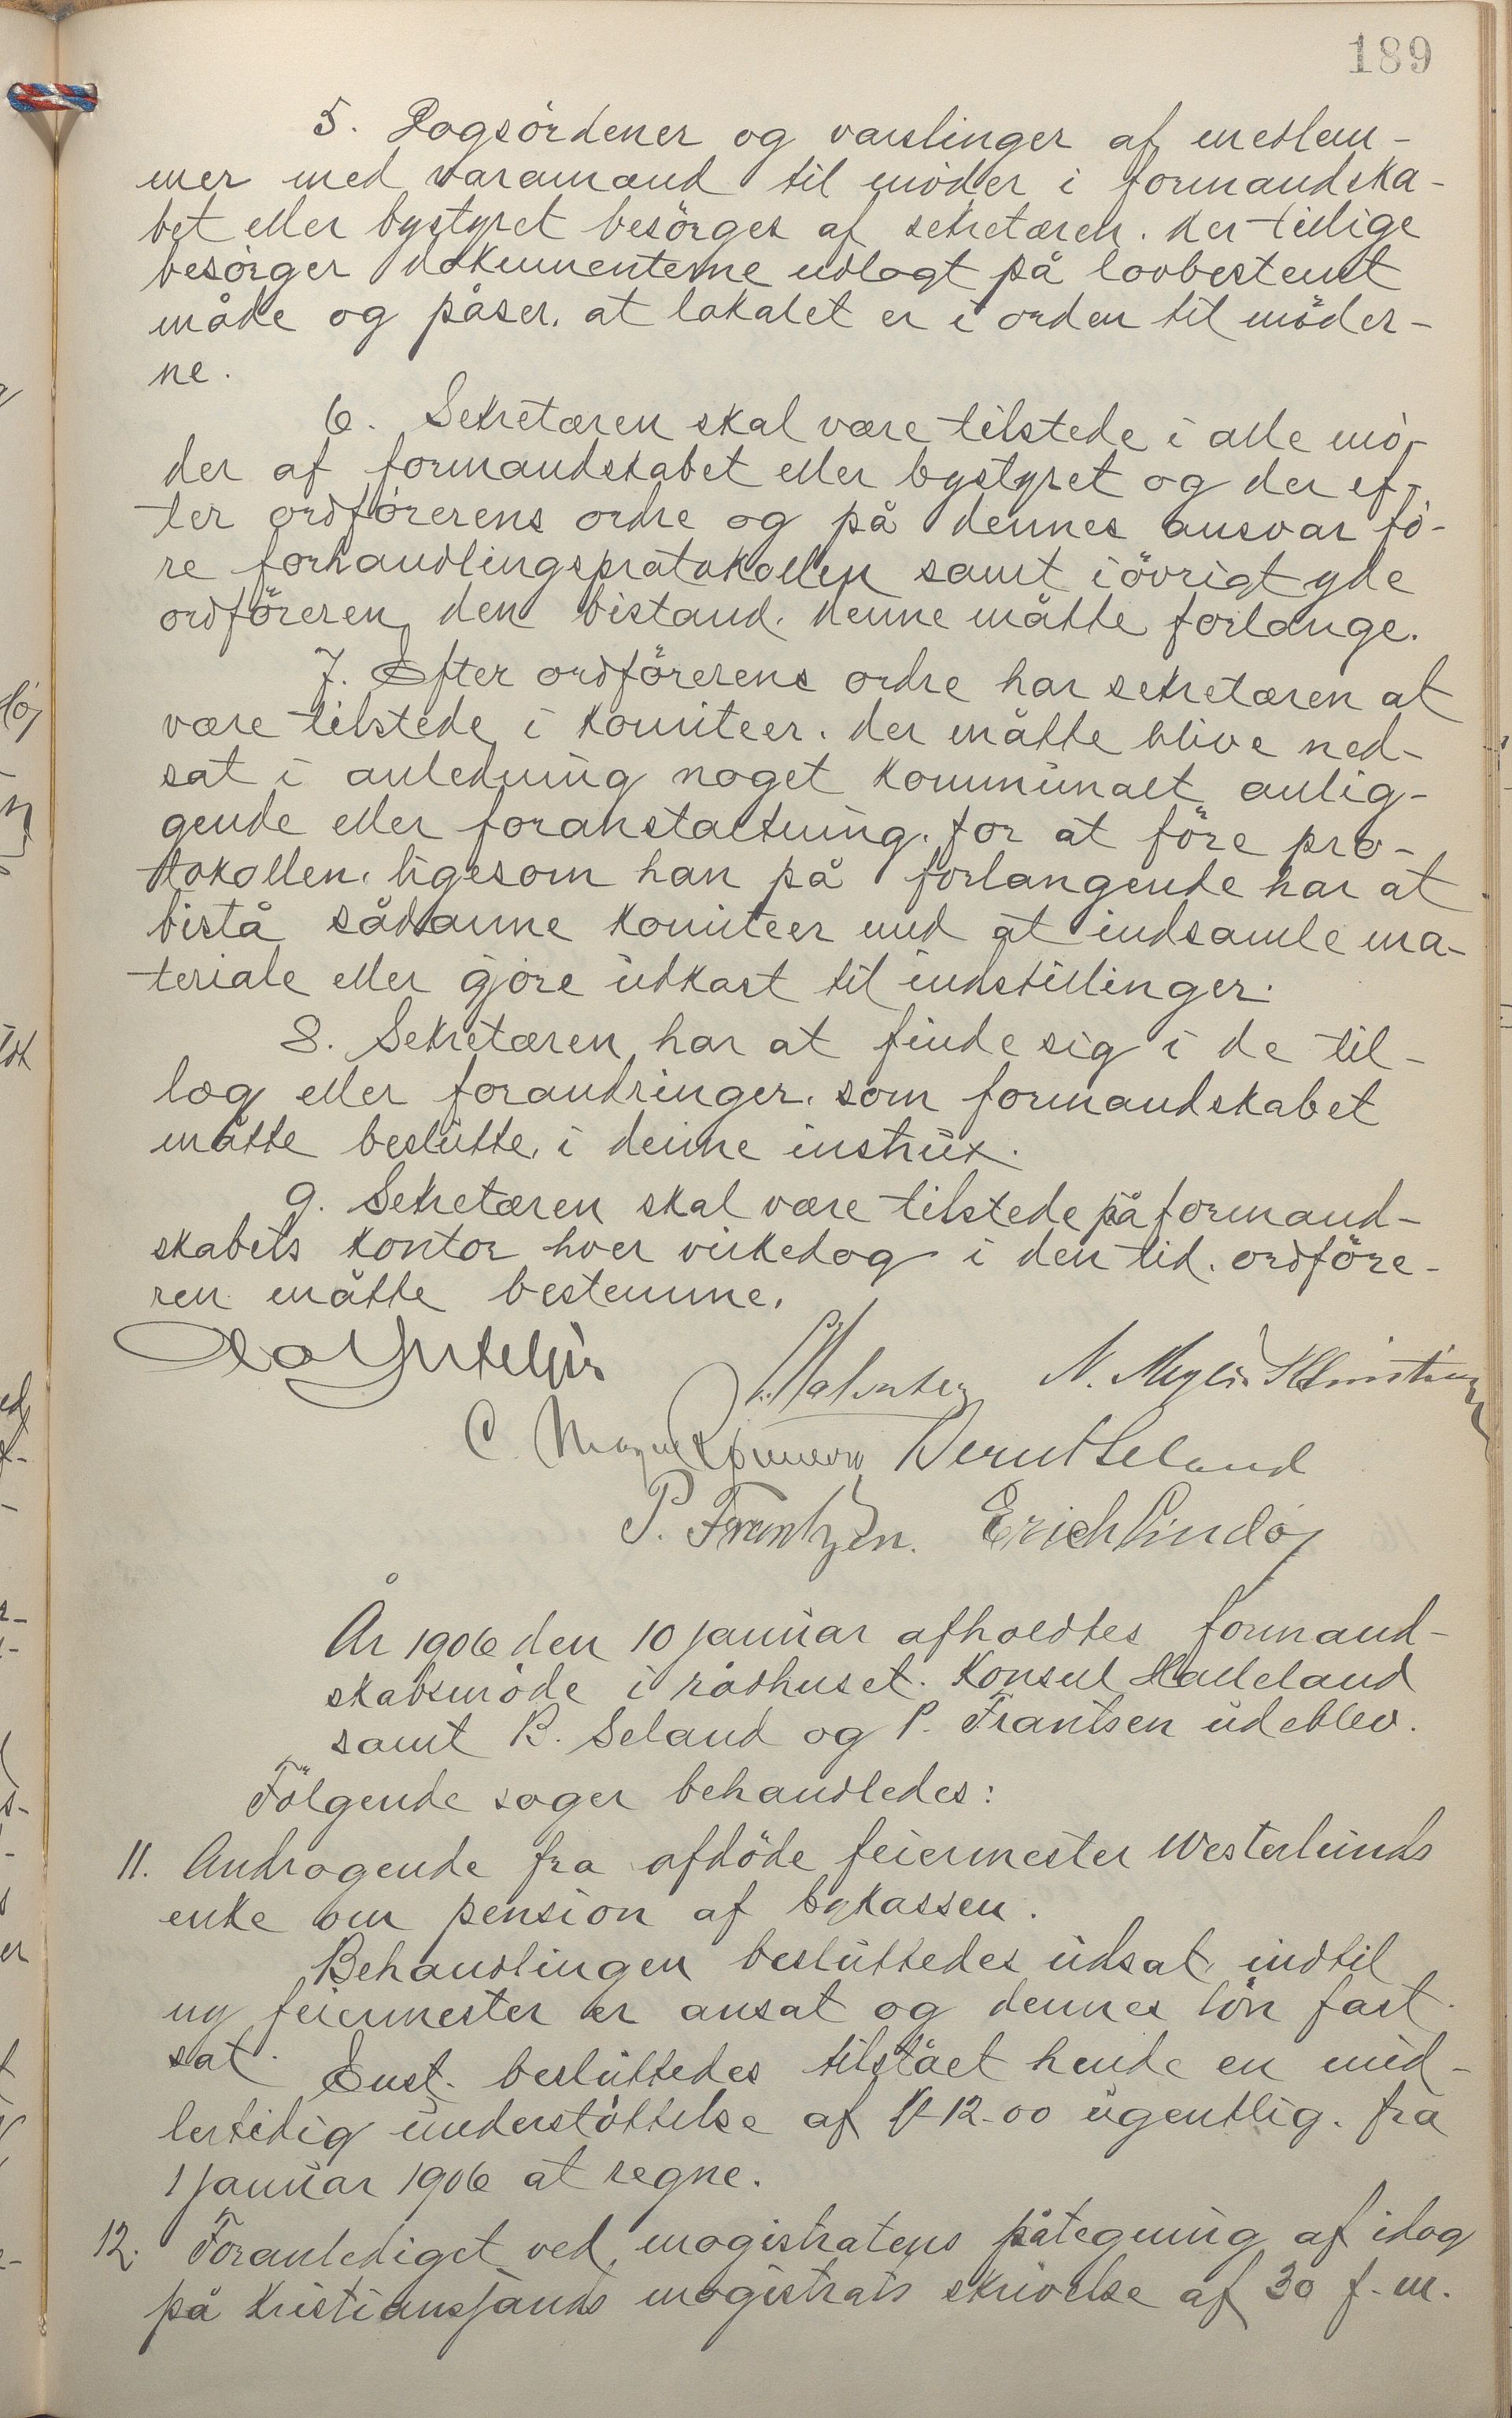 189
5. Dagsördener og varslinger af medlem-
mer med varamænd til möder i formandska-
bet eller bystyret besörges af sekretæren. der tillige
besörger dokumenterne udlagt på lovbestemt
måde og påser, at lokalet er i orden til möder-
ne.
6. Sekretæren skal være tilstede i alle mö-
der af formandskabet eller bystyret og der ef-
ter ordförerens ordre og på dennes ansvar fö-
re forhandlingsprotokollen samt iövrigt yde
ordföreren den bistand, denne måtte forlange.
7. Efter ordförerens ordre har sekretæren at
være tilstede i komiteer, der måtte blive ned-
sat i anledning noget kommunalt anlig-
gende eller foranstaltning, for at före pro-
tokollen, ligesom han på forlangende har at
bistå sådanne komiteer med at indsamle ma-
teriale eller gjöre udkast til indstillinger.
8. Sekretæren har at finde sig i de til-
læg eller forandringer, som formandskabet
måtte beslutte, i denne instrux.
9. Sekretæren skal være tilstede på formand-
skabets kontor hver virkedag i den tid, ordföre-
ren måtte bestemme.
N.
C. Bernt Seland
P. Frantzen. Erich Lindöj
År 1906 den 10 januar afholdtes formand-
skabsmöde i rådhuset. Konsul Hadeland
samt B. Seland og P. Frantsen udeblev.
Fölgende sager behandledes:
11. Andragende fra afdöde feiermester Westerlunds
enke om pension af bykassen.
Behandlingen besluttedes udsat indtil
ny feiermester er ansat og dennes lön fast
sat. Enst. besluttedes tilstået hende en mid-
lertidig understöttelse af kr 12.00 ugentlig, fra
1 januar 1906 at regne.
12. Foranlediget ved magistratens påtegning af idag
på Kristianssands magistrats skrivelse af 30 f. m.